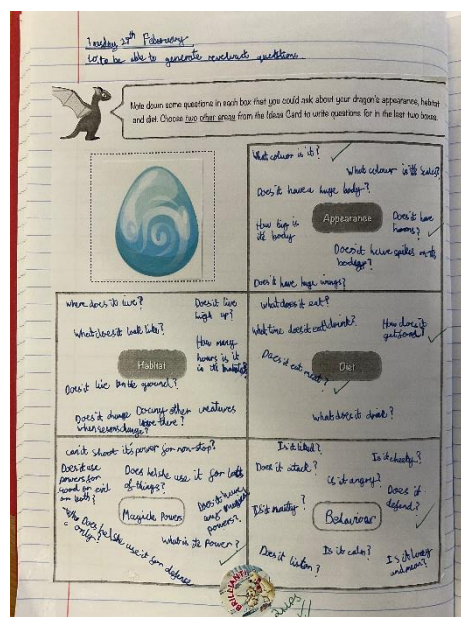 Tuesday 28th February
LO to be able to generate revelvent questions
Note down some questions in each box that you could ask about your dragon's appearance, habitat
and diet. Choose two other areas from the Ideas Card to write questions for in the last two boxes.
What colour is it?
What colour is the scales?
Does it have a huge body?
Appearance
How big is
its body
Does it have
horns?
Does it have spikes on its
body?
Does it have huge wings?
Where does it live?
Does it live
high up?
What does it look like?
How many
hours is it
in the habitat?
Habitat
Does it live on the ground?
Does it change
when seasons change?
Do any other creatures
live there?
What does it eat?
What time does it eat/drink?
How does it
get food?
Does it eat meat?
Diet
What does it drink?
can it shoot its power for non-stop?
Does it use
powers for
good or evil
or both?
Does he/she use it for lots
of things?
Magick Powers
Does it have
any
powers?
What is its Power?
Does he/she use it for defense
only?
Is it liked?
Does it attack?
Is it cheeky?
Is it angry?
Is it naughty?
Behaviour
Does it
defend?
Does it listen?
Is it calm?
Is it
and mean?
BRILLIANT